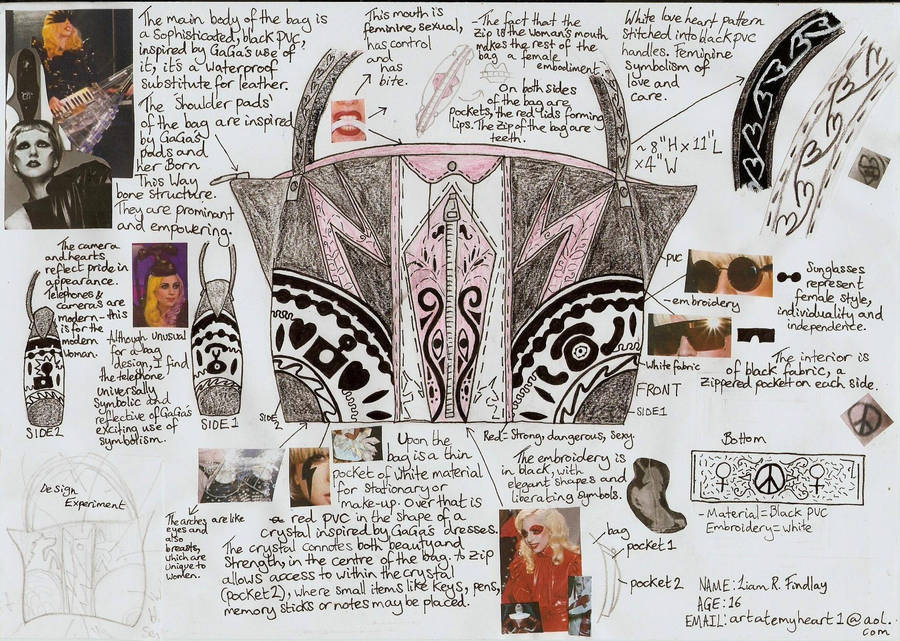 The main body of the bag is
a sophisticated, black PVC,
inspired by GaGa's use of
it, it's a waterproof
substitute for leather.
The 'shoulder pads'
of the bag are inspired
by GaGa's
pads and
her Born
This Way
bone structure.
They are prominant
and empowering.
This mouth is
feminine, sexual,
has control
and
has
bite.
-The fact that the
zip is the woman's mouth
makes the rest of the
bag a female
embodiment.
On both sides
of the bag are
pockets, the red lids forming
lips. The zip of the bag are
teeth.
White love heart pattern
stitched into black PVC
handles. Feminine
symbolism of
love and
care.
~ 8"H x 11"L
x 4"W
The camera
and hearts
reflect pride in
appearance.
Telephones &
cameras are
modern - this
is for the
modern
woman.
Although unusual
for a bag
design, I find
the telephone
universally
symbolic and
reflective of GaGa's
exciting use of
symbolism.
SIDE 2
SIDE 1
PVC
-embroidery
White fabric
FRONT
-SIDE 1
SIDE 2
Sunglasses
represent
female style,
individuality and
independence.
The interior is
of black fabric, a
zippered pocket on each side.
Red = Strong, dangerous, sexy
The embroidery is
in black, with
elegant shapes and
liberating symbols.
Upon the
bag is a thin
pocket of white material
for stationary or
make-up. Over that is
red PVC in the shape of a
crystal inspired by GaGa's dresses.
The crystal connotes both beauty and
strength, in the centre of the bag. to zip
allows access to within the crystal
(pocket 2), where small items like keys, pens,
memory sticks or notes may be placed.
The arches
are like
eyes and
also
breasts,
which are
unique to
women.
Design
Experiment
bag
pocket 1
pocket 2
Bottom
-Material = Black PVC
Embroidery = white
NAME: Liam R. Findlay
AGE: 16
EMAIL: artatemyheart1@aol.
com